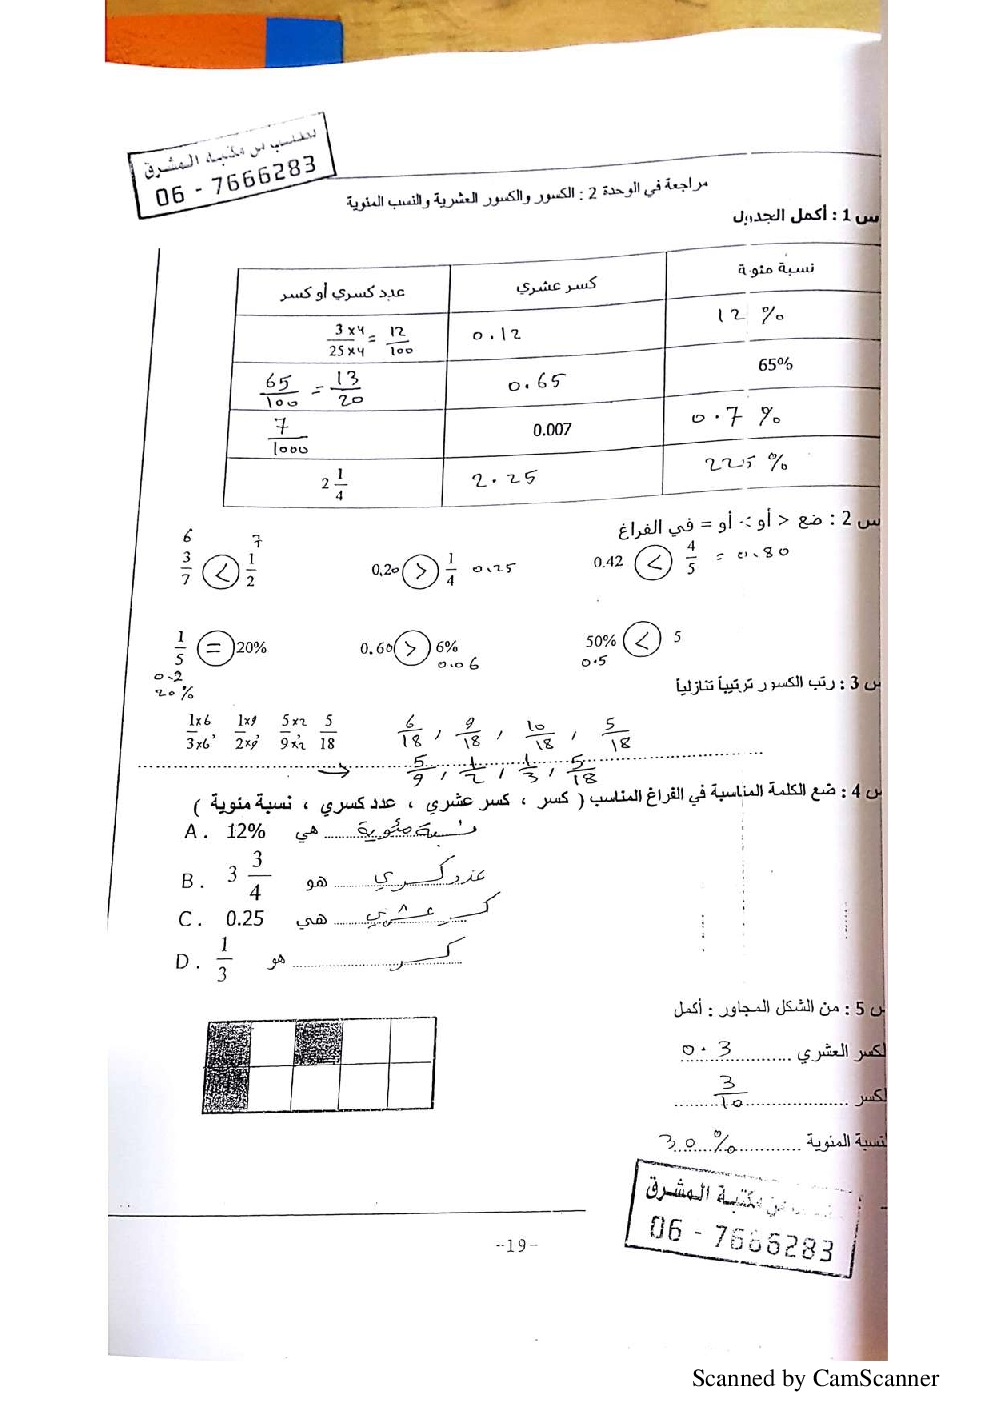 للطلب من مكتبة المشرق
06 - 7666283
مراجعة في الوحدة 2 : الكسور والكسور العشرية والنسب المئوية
س 1 : أكمل الجدول
نسبة مئوية كسر عشري عدد كسري أو كسر
12 % 0.12 3 x4 / 25 x4 = 12/100
65% 0.65 65/100 = 13/20
0.7 % 0.007 7/1000
225 % 2.25 2 1/4
س 2 : ضع < أو > أو = في الفراغ
6 7
3/7 < 1/2 0,20 > 1/4 0.25 0.42 < 4/5 = 0.80
1/5 = 20% 0.60 > 6% 50% < 5
0.2 0.06 0.5
20 %
س 3 : رتب الكسور ترتيباً تنازلياً
1x6/3x6 , 1x9/2x9 , 5x2/9x2 , 5/18 6/18 , 9/18 , 10/18 , 5/18
5/9 , 1/2 , 1/3 , 5/18
س 4 : ضع الكلمة المناسبة في الفراغ المناسب ( كسر ، كسر عشري ، عدد كسري ، نسبة مئوية )
A . 12% هي نسبة مئوية
B . 3 3/4 هو عدد كسري
C . 0.25 هي كسر عشري
D . 1/3 هو كسر
س 5 : من الشكل المجاور : أكمل
لكسر العشري 0.3
لكسر 3/10
لنسبة المئوية 30 %
من مكتبة المشرق
06 - 7666283
-19-
Scanned by CamScanner